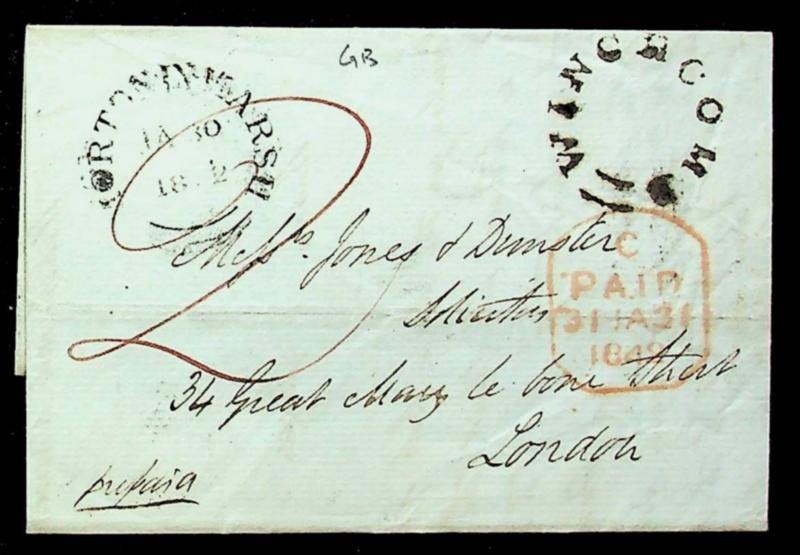 GB
MORTON IN MARSH
JA 30
WINCHCOM
2
Messrs. Jones & Dunster
Solicitors
C
PAID
31 JA 31
34 Great Mary le bone Street
London
prepaid